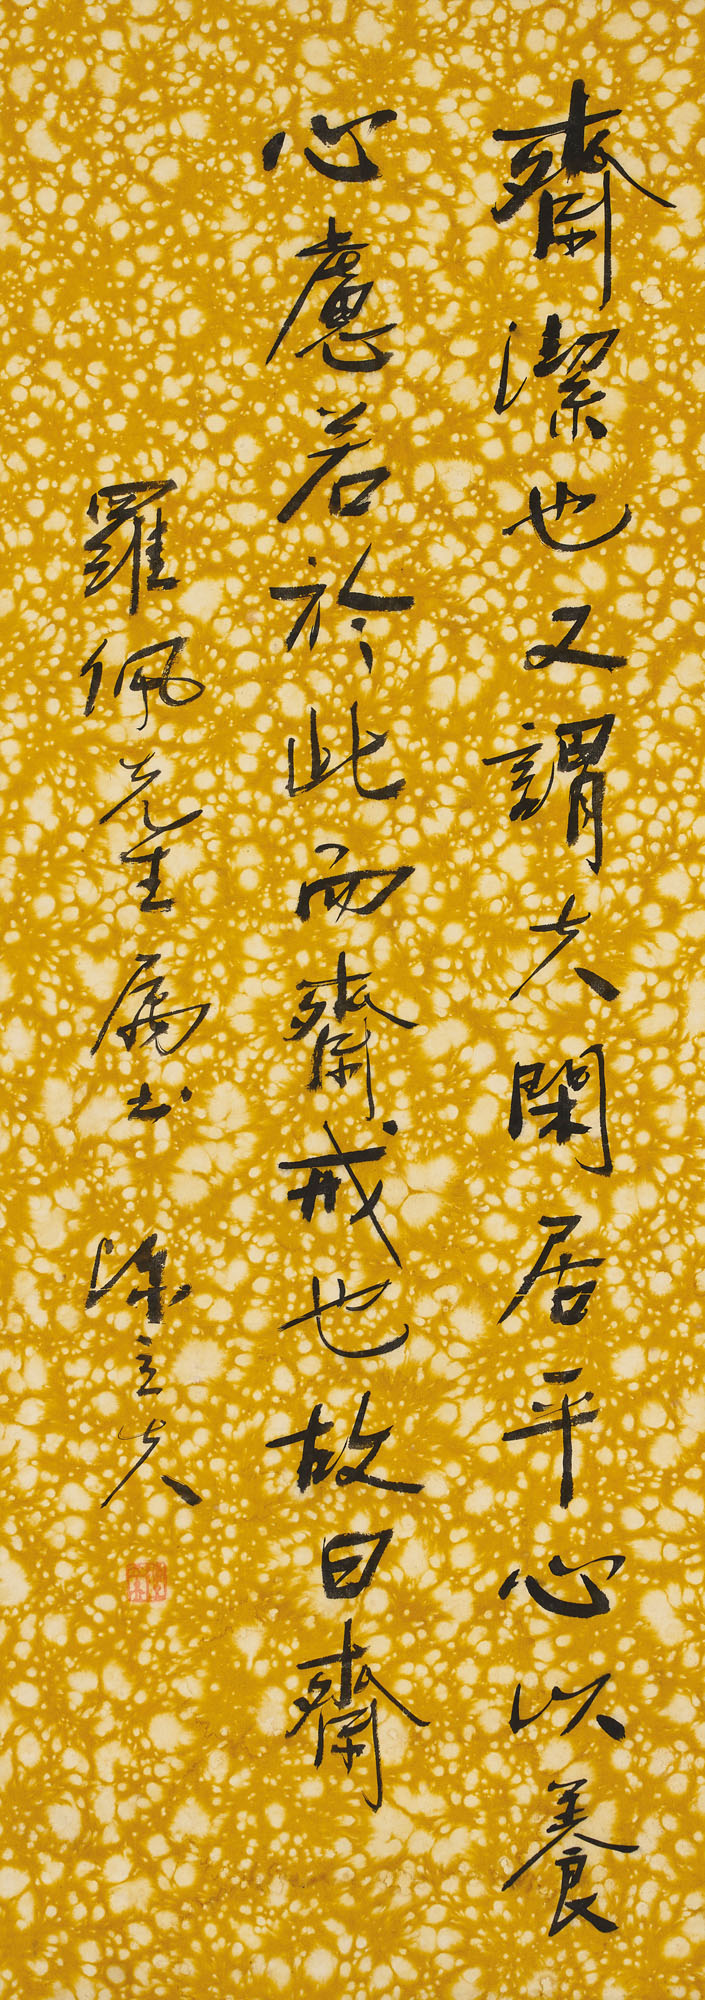 齋潔也又謂夫閑居平心以養
心慮若於此而齋戒也故曰齋
羅佩先生屬書 陳立夫